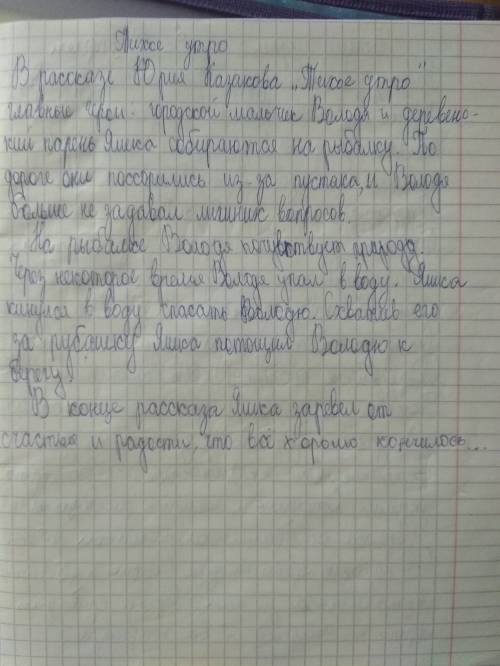 Тихое утро
В рассказе Юрия Казакова "Тихое утро"
главные герои: городской мальчик Володя и деревенс-
кий парень Яшка собираются на рыбалку. По
дороге они поссорились из-за пустяка, и Володя
больше не задавал лишних вопросов.
На рыбалке Володя почувствует природу.
Через некоторое время Володя упал в воду. Яшка
кинулся в воду спасать Володю. Схватив его
за рубашку Яшка потощил Володю к
берегу.
В конце рассказа Яшка заревел от
счастья и радости, что всё хорошо кончилось...